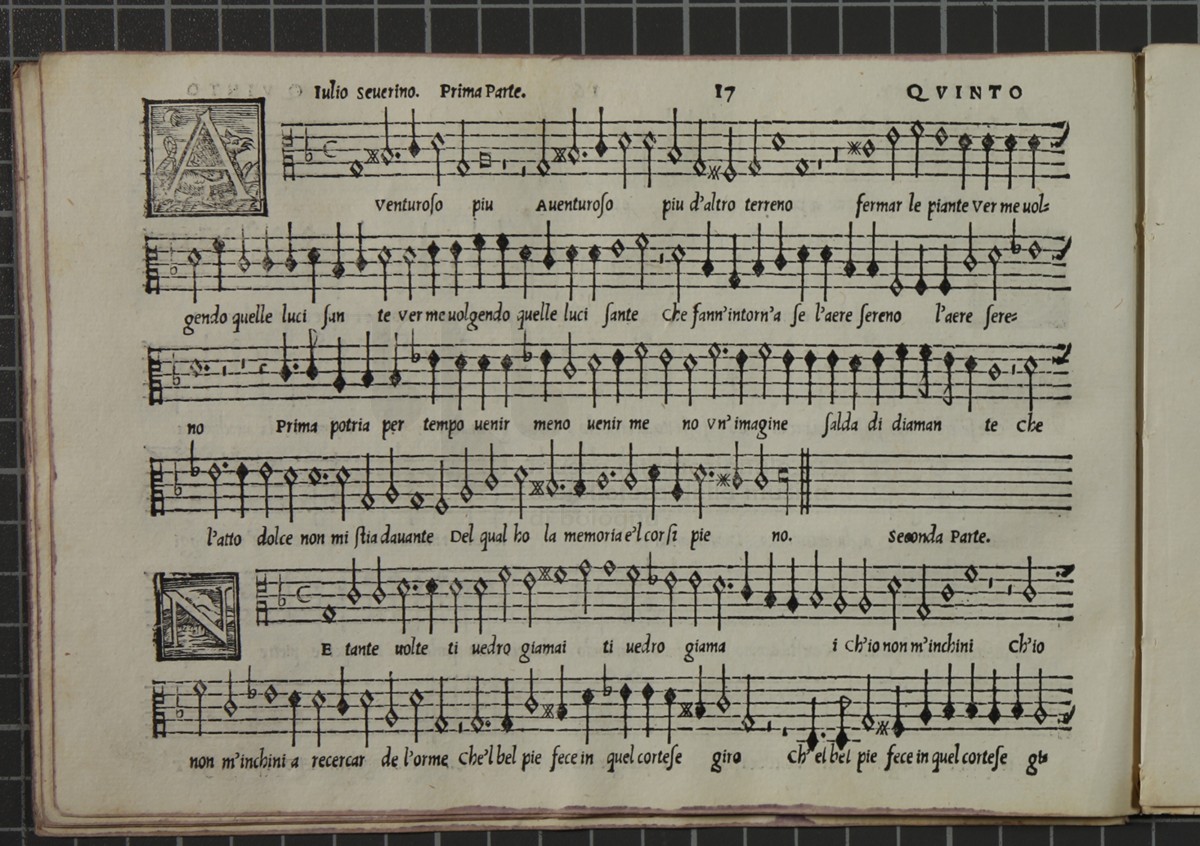 Iulio Seuerino. Prima Parte. 17 QVINTO
A Venturoso piu Auenturoso piu d'altro terreno fermar le piante ver me uol=
gendo quelle luci san te ver me uolgendo quelle luci sante Che fann'intorn'a se l'aere sereno l'aere sere=
no Prima potria per tempo uenir meno uenir me no vn'imagine salda di diaman te che
l'atto dolce non mi stia dauante Del qual ho la memoria e'l cor si pie no. Seconda Parte.
N E tante uolte ti uedro giamai ti uedro giama i Ch'io non m'inchini Ch'io
non m'inchini a recercar de l'orme Che'l bel pie fece in quel cortese giro Ch'el bel pie fece in quel cortese gi=